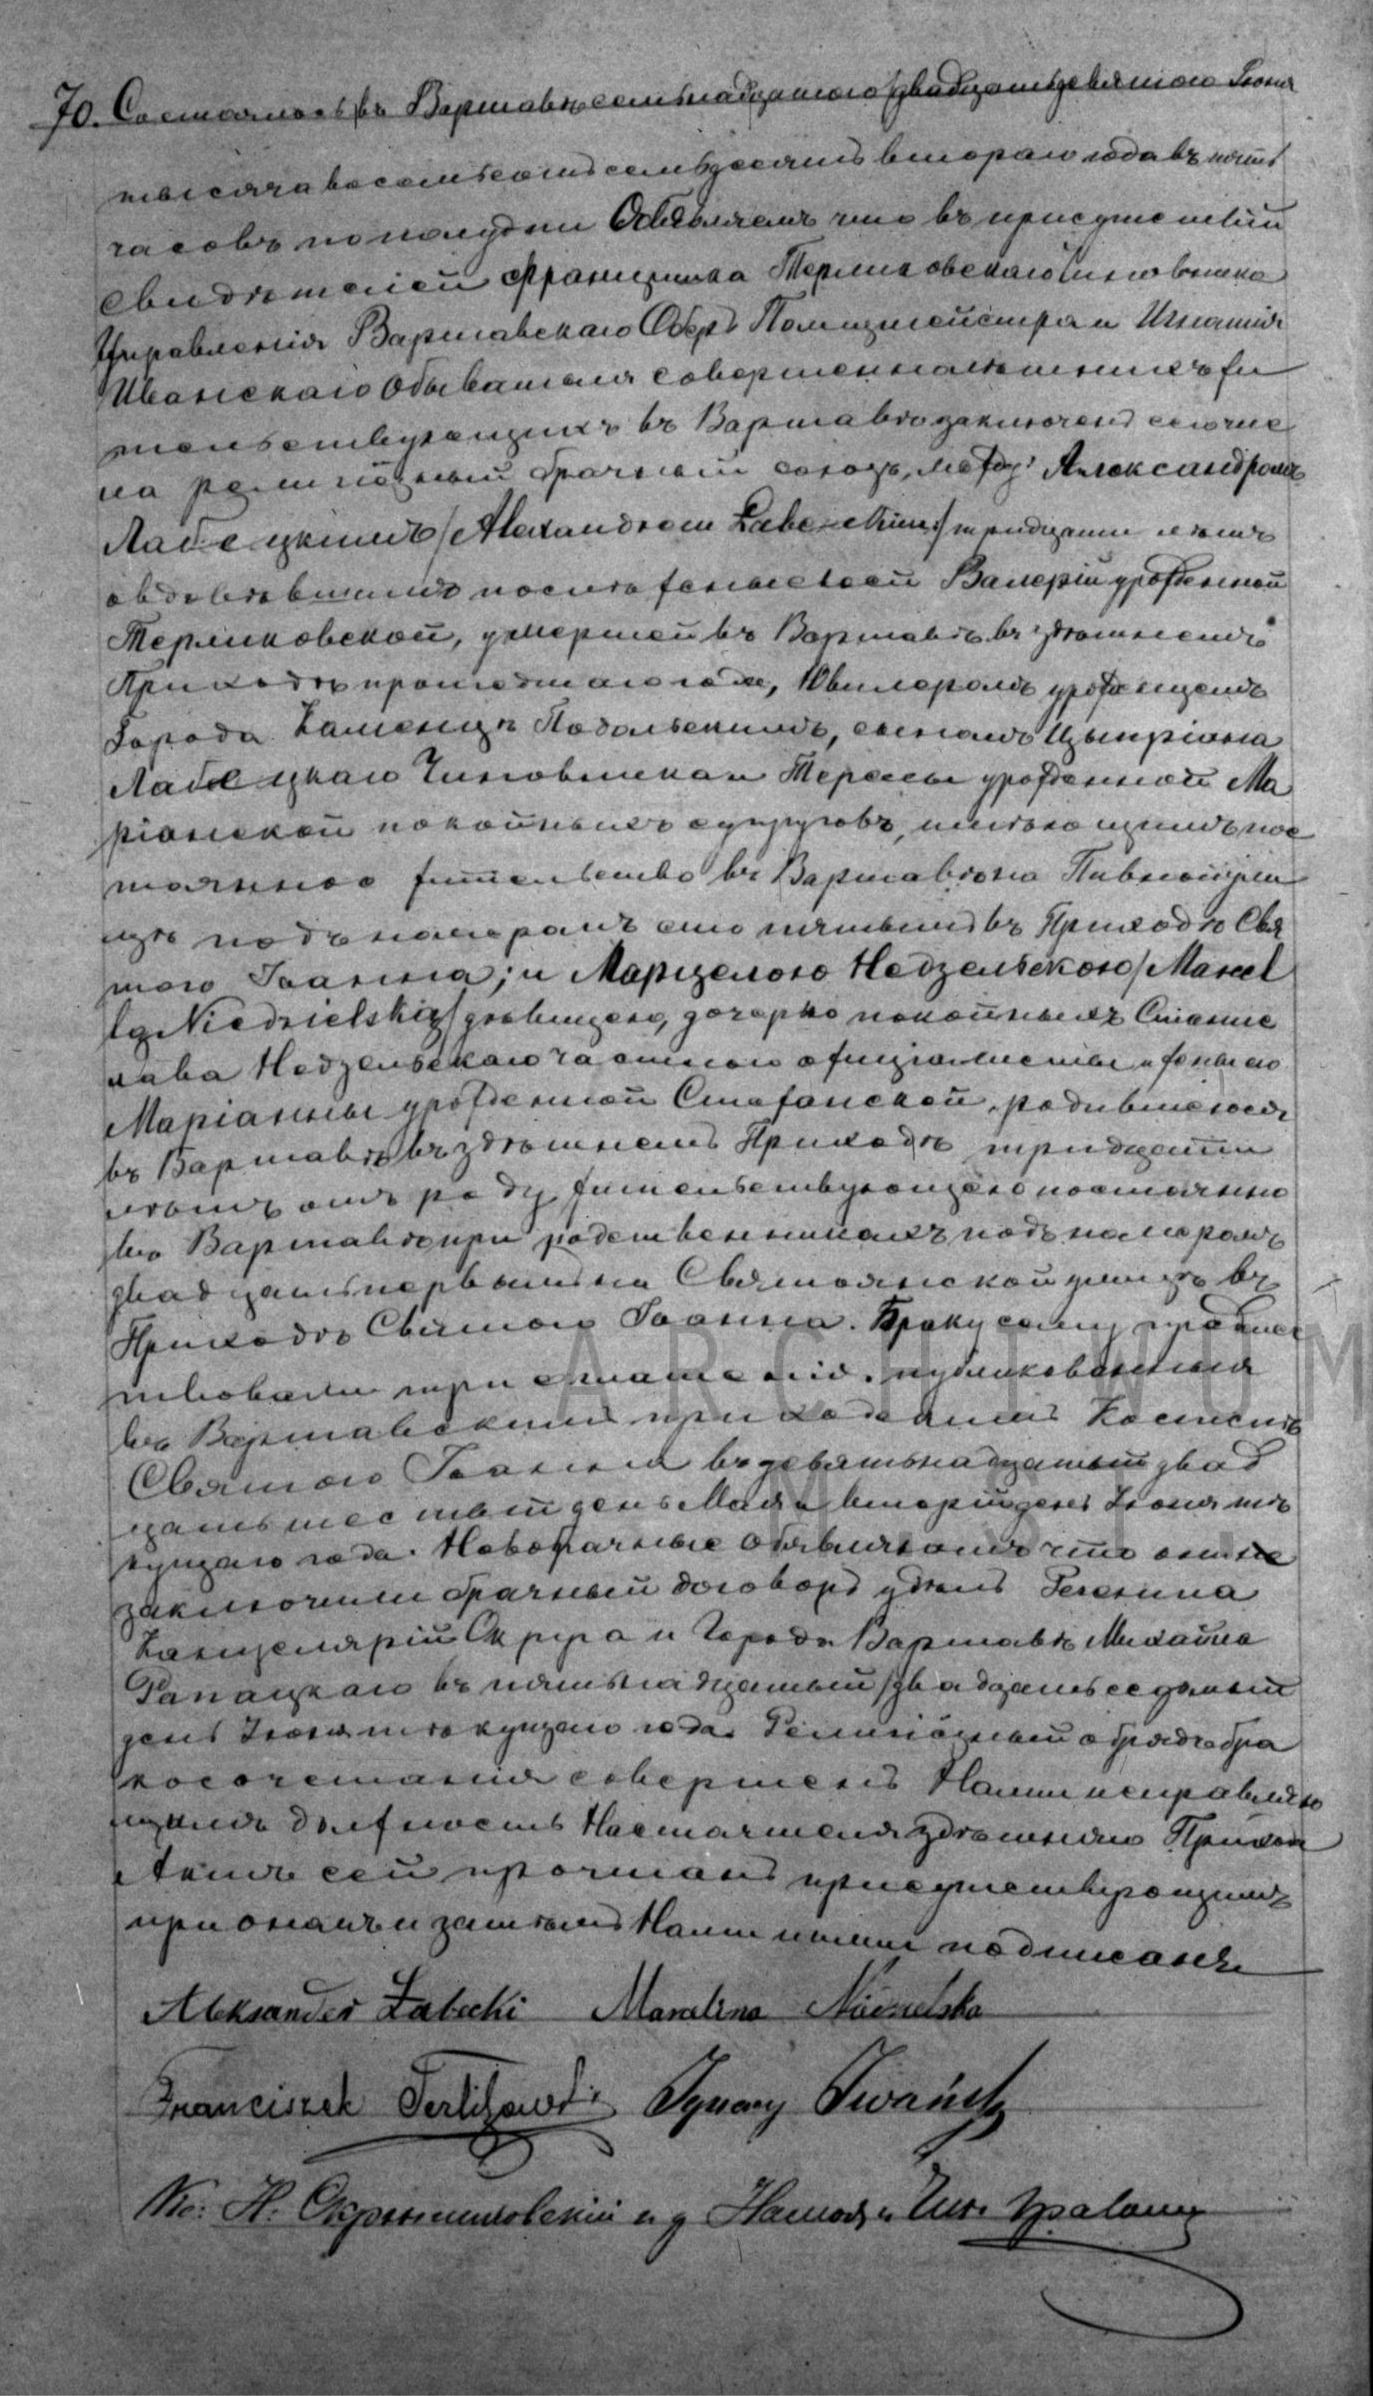 70. Состоялось въ Варшавѣ семьнадцатого /двадцать девятого Іюня
тысяча восемьсотъ семьдесятъ второго года въ пять
часовъ по полудни Объявляемъ что въ присутствіи
свидѣтелей Францишка Терликовскаго Чиновника
Управленія Варшавскаго Оберъ Полицмейстра и Игнатія
Иванскаго Обывателя совершеннолѣтнихъ жи
тельствующихъ въ Варшавѣ заключенъ сегочис
ла религіозный брачный союзъ, между Александромъ
Лабецкимъ /Alexandrem Łabeckim/ тридцати лѣтъ
овдовѣвшимъ послѣ жены своей Валеріи урожденной
Терликовской, умершей въ Варшавѣ въ здѣшнемъ
Приходѣ прошедшаго года, Ювилеромъ урожденцемъ
Города Каменцъ Подольскимъ, сыномъ Цыпріана
Лабецкаго Чиновника и Тересы урожденной Ма
ріанской покойныхъ супруговъ, имѣющимъ пос
тоянное жительство въ Варшавѣ на Пивной ули
цѣ подъ номеромъ сто пятымъ въ Приходѣ Свя
того Іоанна; и Марцелою Недзельскою /Marcel
lą Niedzielską/ дѣвицею, дочерью покойныхъ Станис
лава Недзельскаго частного офиціалисты и жены его
Маріанны урожденной Стефанской, родившеюся
въ Варшавѣ въ здѣшнемъ Приходѣ тридцати
лѣтъ отъ роду жительствующею постоянно
въ Варшавѣ при родственникахъ подъ номеромъ
двадцать первымъ на Святоянской улицѣ въ
Приходѣ Святого Іоанна. Браку сему предшес
твовали три оглашенія, публикованныя
въ Варшавскимъ приходскимъ Костелѣ
Святого Іоанна въ девятьнадцатый двад
цать шестый день Мая и вторый день Іюня тѣ
кущаго года. Новобрачные объявляютъ что они
заключили брачный договоръ удѣлъ Регента
Канцеляріи Округа и Города Варшавѣ Михаила
Рапацкаго въ пятьнадцатый /двадцать седьмый
день Іюня тѣкущаго года. Религіозный обрядъ бра
косочетанія совершенъ Нами исправляю
щимъ должность Настоятеля здѣшняго Прихода
Актъ сей прочитанъ присутствующимъ
при ономъ и затѣмъ Нами и ними подписанъ
Aleksander Łabecki Marcelina Niedzielska
Franciszek Terlikowski Ignacy Iwański
Кс: Н. и д Настоя и Чин. Гражданс
ARCHIWUM
M. ST.